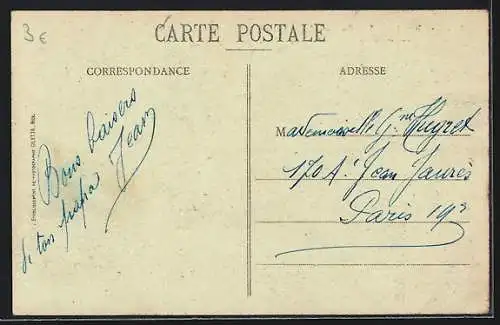 3€
CARTE POSTALE
CORRESPONDANCE
ADRESSE
Bons baisers
de ton papa
Jean
Mademoiselle Gne Hugret
170 A. Jean Jaurès
Paris 19e